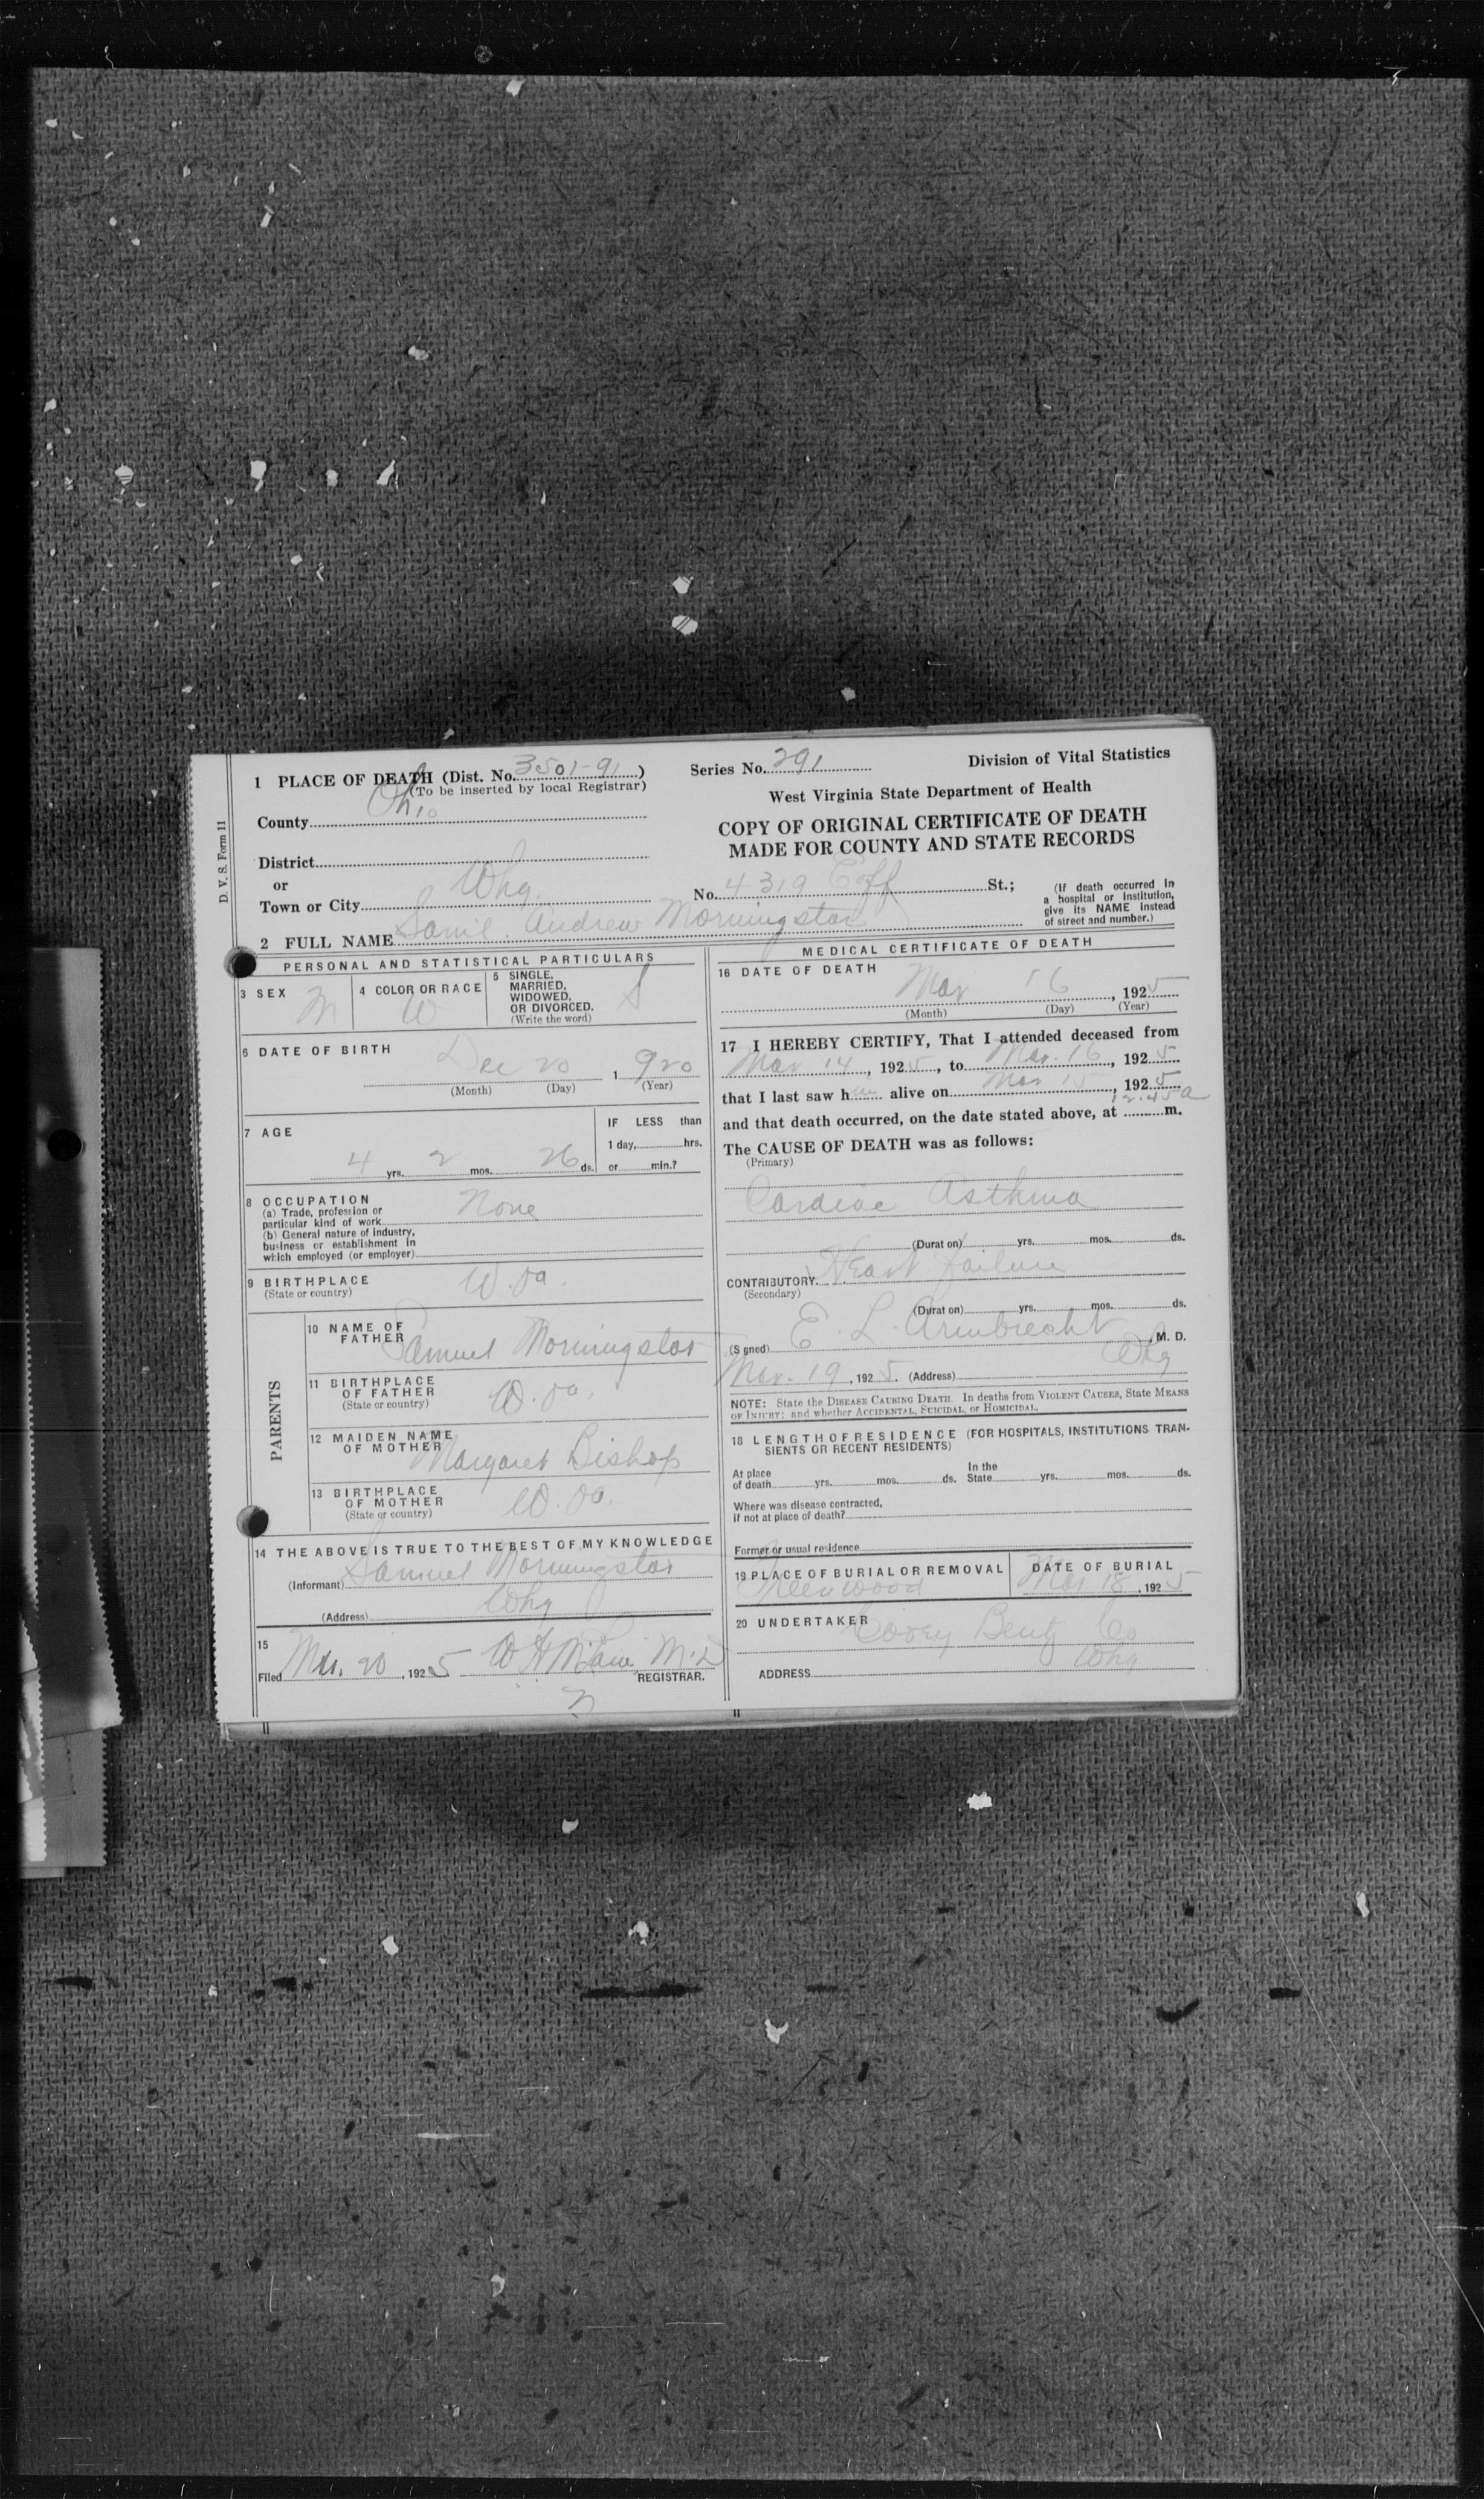 D. V. S. Form 11
1 PLACE OF DEATH (Dist. No. 3501-91)
(To be inserted by local Registrar)
County Ohio
District
or
Town or City Whg.
Series No. 291
Division of Vital Statistics
West Virginia State Department of Health
COPY OF ORIGINAL CERTIFICATE OF DEATH
MADE FOR COUNTY AND STATE RECORDS
No. 4319 Eoff St.;
(If death occurred in
a hospital or institution,
give its NAME instead
of street and number.)
2 FULL NAME Saml. Andrew Morningstar
PERSONAL AND STATISTICAL PARTICULARS
3 SEX M
4 COLOR OR RACE W
5 SINGLE,
MARRIED,
WIDOWED,
OR DIVORCED.
(Write the word)
S
6 DATE OF BIRTH
Dec 20 1920
(Month) (Day) (Year)
7 AGE
4 yrs. 2 mos. 26 ds.
IF LESS than
1 day, hrs.
or min.?
8 OCCUPATION
(a) Trade, profession or
particular kind of work None
(b) General nature of industry,
business or establishment in
which employed (or employer)
9 BIRTHPLACE
(State or country)
W.Va.
PARENTS
10 NAME OF
FATHER Samuel Morningstar
11 BIRTHPLACE
OF FATHER
(State or country)
W.Va.
12 MAIDEN NAME
OF MOTHER Margaret Bishop
13 BIRTHPLACE
OF MOTHER
(State or country)
W.Va.
14 THE ABOVE IS TRUE TO THE BEST OF MY KNOWLEDGE
(Informant) Samuel Morningstar
(Address) Whg
15
Filed Mar. 20, 1925 W H M M.D
REGISTRAR.
MEDICAL CERTIFICATE OF DEATH
16 DATE OF DEATH
Mar 16, 1925
(Month) (Day) (Year)
17 I HEREBY CERTIFY, That I attended deceased from
Mar 14, 1925, to Mar. 16, 1925
that I last saw him alive on Mar 15, 1925
and that death occurred, on the date stated above, at 12.45a m.
The CAUSE OF DEATH was as follows:
(Primary)
Cardiac Asthma
(Durat on) yrs. mos. ds.
CONTRIBUTORY Heart Failure
(Secondary)
(Durat on) yrs. mos. ds.
(S gned) E. L. Armbrecht, M. D.
Mar. 19, 1925. (Address) Whg
NOTE: State the DISEASE CAUSING DEATH. In deaths from VIOLENT CAUSES, State MEANS
OF INJURY; and whether ACCIDENTAL, SUICIDAL, or HOMICIDAL.
18 LENGTH OF RESIDENCE (FOR HOSPITALS, INSTITUTIONS TRAN-
SIENTS OR RECENT RESIDENTS)
At place
of death yrs. mos. ds.
In the
State yrs. mos. ds.
Where was disease contracted,
if not at place of death?
Former or usual residence
19 PLACE OF BURIAL OR REMOVAL
Greenwood
DATE OF BURIAL
Mar 18, 1925
20 UNDERTAKER Cooey Bentz Co
Whg
ADDRESS